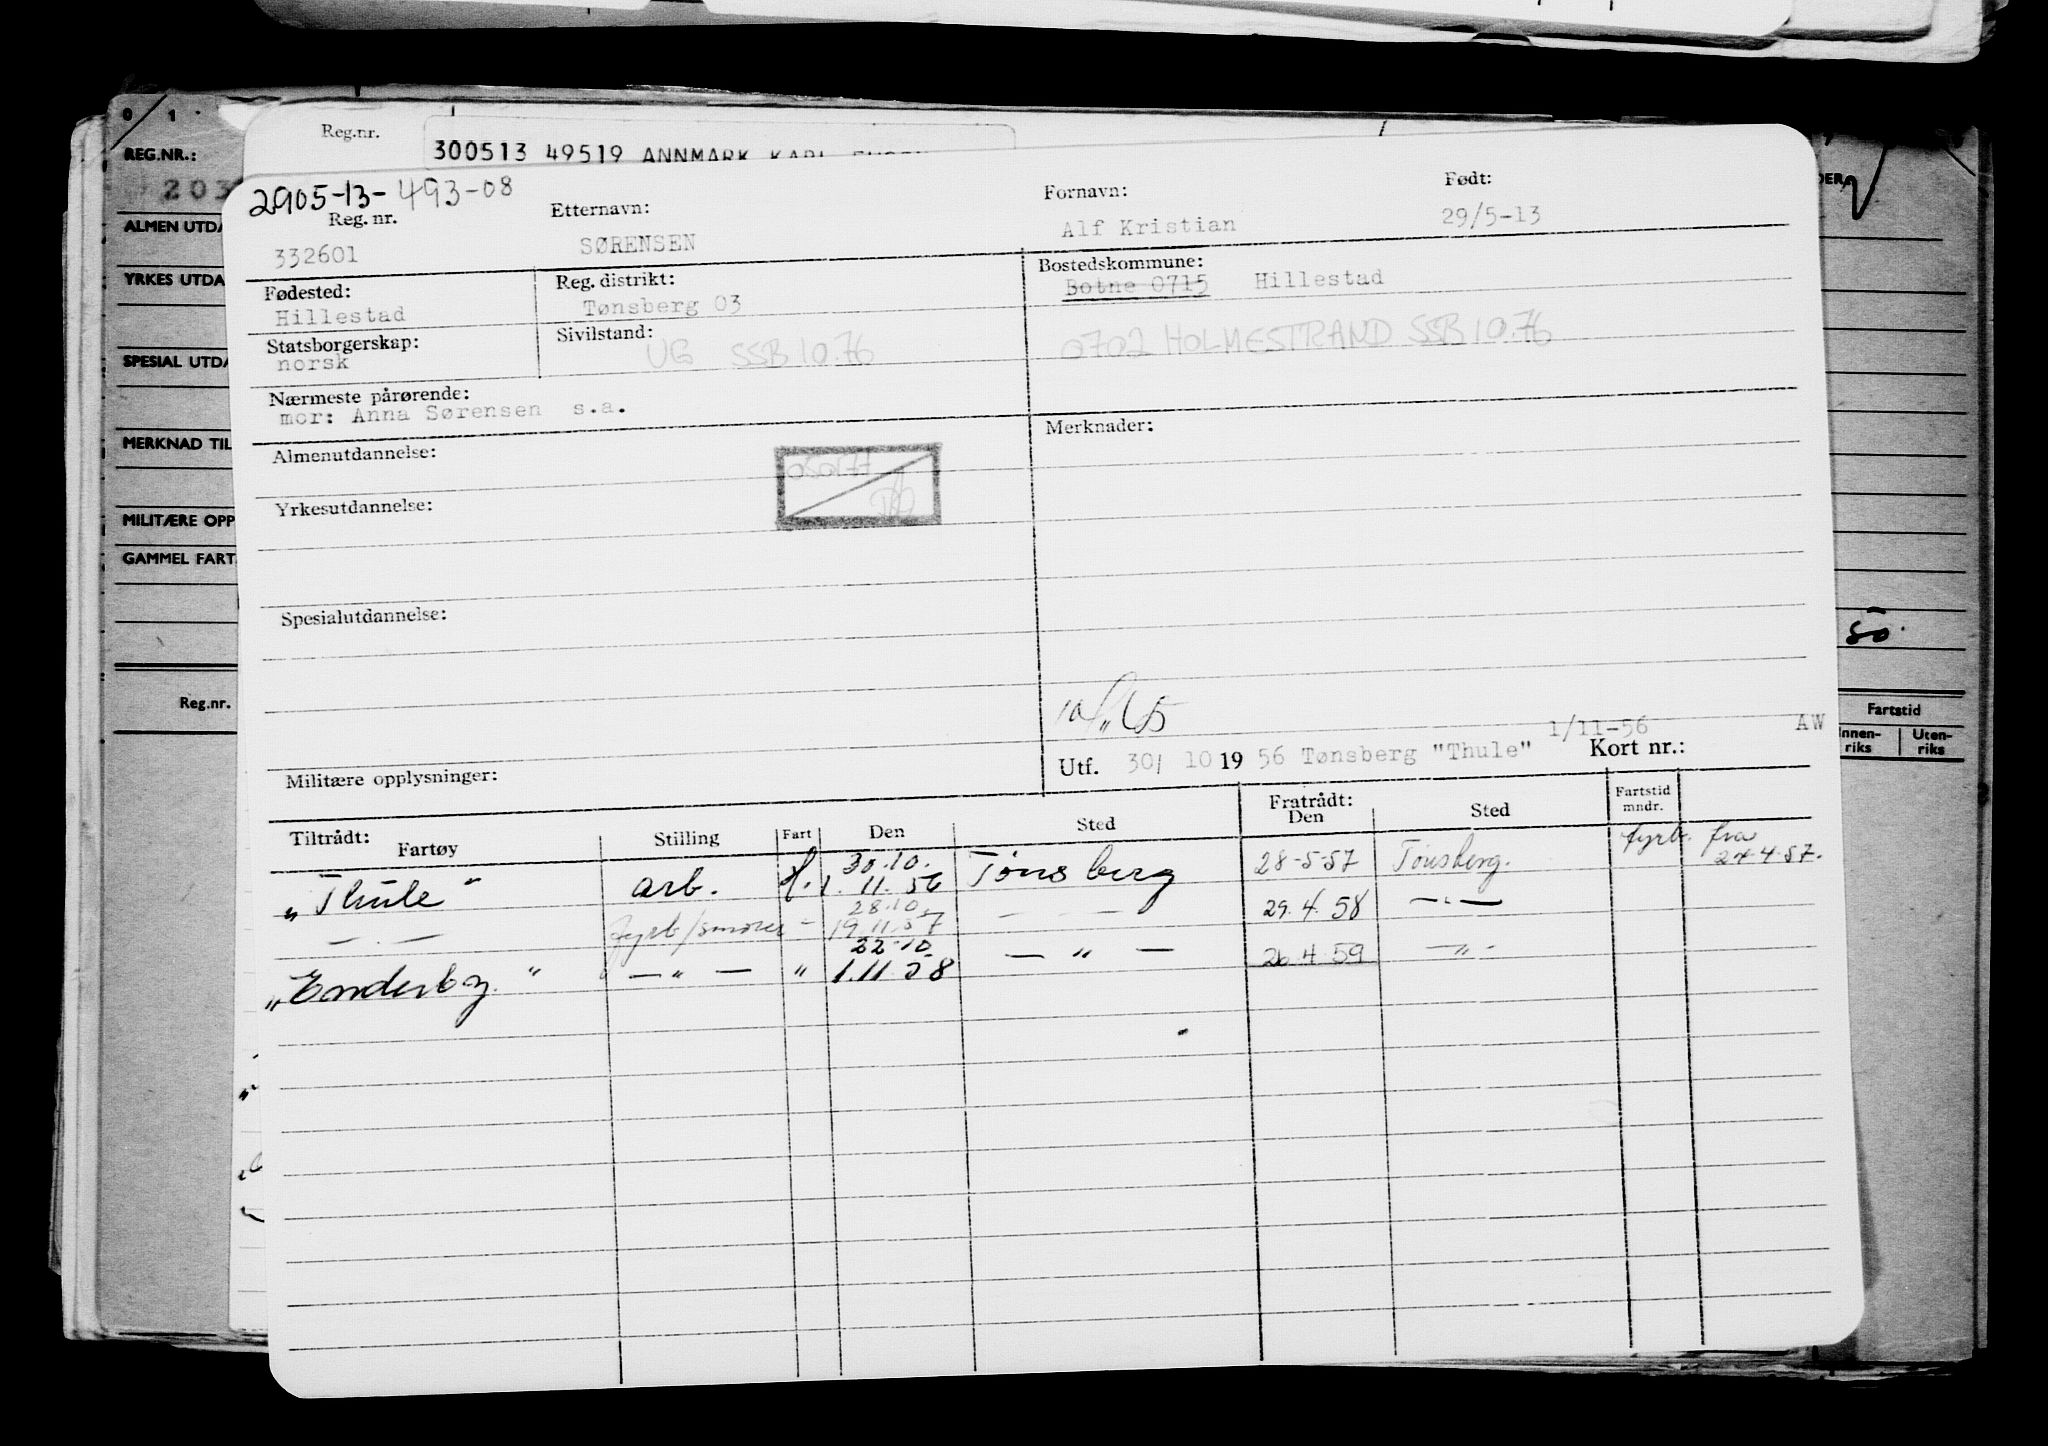 0 1
Reg.nr.
300513 49519 ANNMARK KARL
REG.NR.:
203
ALMEN UTDA
YRKES UTDA
SPESIAL UTDA
MERKNAD TIL
MILITÆRE OPP
GAMMEL FART
Reg.nr.
2905-13-493-08
Reg. nr. Etternavn: Fornavn: Født:
332601 SØRENSEN Alf Kristian 29/5-13
Fødested: Reg. distrikt: Bostedskommune:
Hillestad Tønsberg 03 Botne 0715 Hillestad
Statsborgerskap: Sivilstand:
norsk UG SSB 10.76 0702 HOLMESTRAND SSB 10.76
Nærmeste pårørende:
mor: Anna Sørensen s.a.
Almenutdannelse: Merknader:
Yrkesutdannelse:
Spesialutdannelse:
Militære opplysninger:
1/11-56 AW
Utf. 30/ 10 19 56 Tønsberg "Thule" Kort nr.:
Tiltrådt: Fratrådt: Fartstid
Fartøy Stilling Fart Den Sted Den Sted mndr.
"Thule" arb. H. 30.10. 1.11.56 Tønsberg 28-5-57 Tønsberg. fyrb. fra 24.4.57.
— . — fyrb/smører - 28.10. 19.11.57 — - — 29.4.58 — " —
"Enderby." — " — " 22.10. 1.11.58 — " — 26.4.59 — " -
DER
50.
Fartstid
Innen-riks Uten-riks